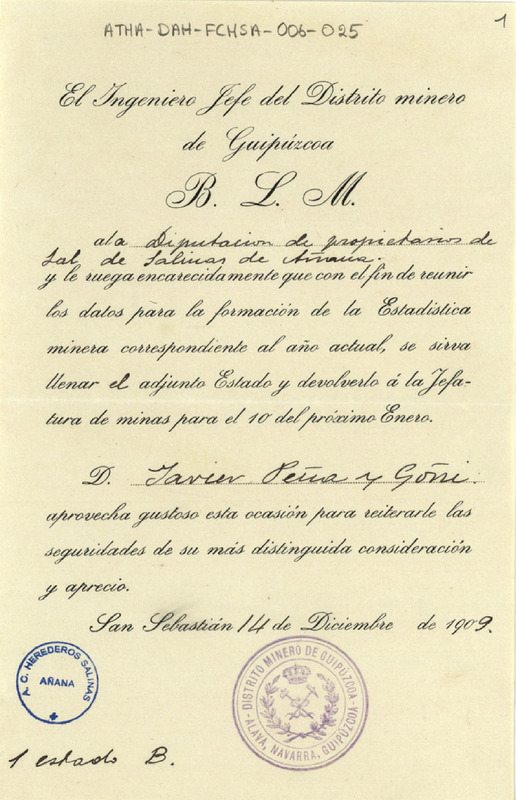 ATHA-DAH-FCHSA-006-025
1
El Ingeniero Jefe del Distrito minero
de Guipúzcoa
B. L. M.
a la Diputacion de propietarios de
Sal de Salinas de Añana.
y le ruega encarecidamente que con el fin de reunir
los datos para la formación de la Estadística
minera correspondiente al año actual, se sirva
llenar el adjunto Estado y devolverlo á la Jefa-
tura de minas para el 10 del próximo Enero.
D. Javier Peña y Goñi
aprovecha gustoso esta ocasión para reiterarle las
seguridades de su más distinguida consideración
y aprecio.
San Sebastián 14 de Diciembre de 1909.
A. C. HEREDEROS SALINAS
AÑANA
DISTRITO MINERO DE GUIPÚZCOA
ALAVA, NAVARRA, GUIPÚZCOA
1 estado B.